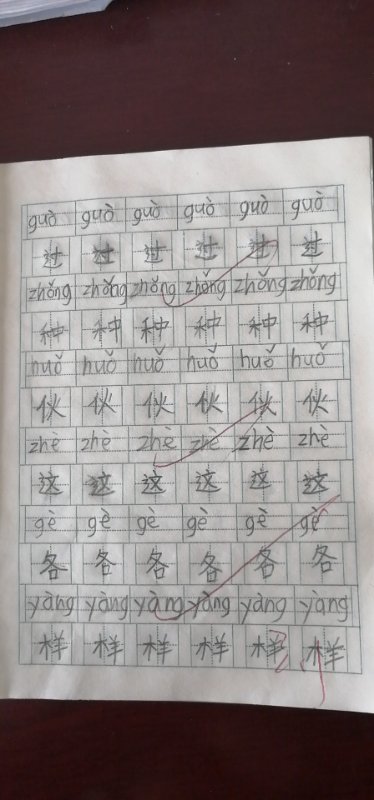 guò guò guò guò guò guò
过 过 过 过 过 过
zhǒng zhǒng zhǒng zhǒng zhǒng zhǒng
种 种 种 种 种 种
huǒ huǒ huǒ huǒ huǒ huǒ
伙 伙 伙 伙 伙 伙
zhè zhè zhè zhè zhè zhè
这 这 这 这 这 这
gè gè gè gè gè gè
各 各 各 各 各 各
yàng yàng yàng yàng yàng yàng
样 样 样 样 样 样